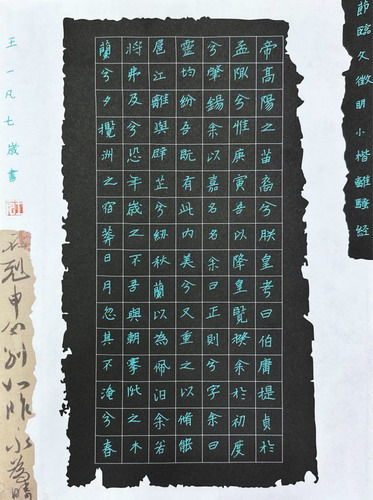 節臨文徵明小楷離騷經
帝高陽之苗裔兮朕皇考曰伯庸提貞於
孟陬兮惟庚寅吾以降皇覽揆余於初度
兮肇錫余以嘉名名余曰正則兮字余曰
靈均紛吾既有此內美兮又重之以脩能
扈江離與辟芷兮紉秋蘭以為佩汩余若
將弗及兮恐年歲之不吾與朝搴阰之木
蘭兮夕攬洲之宿莽日月忽其不淹兮春
王一凡七歲書